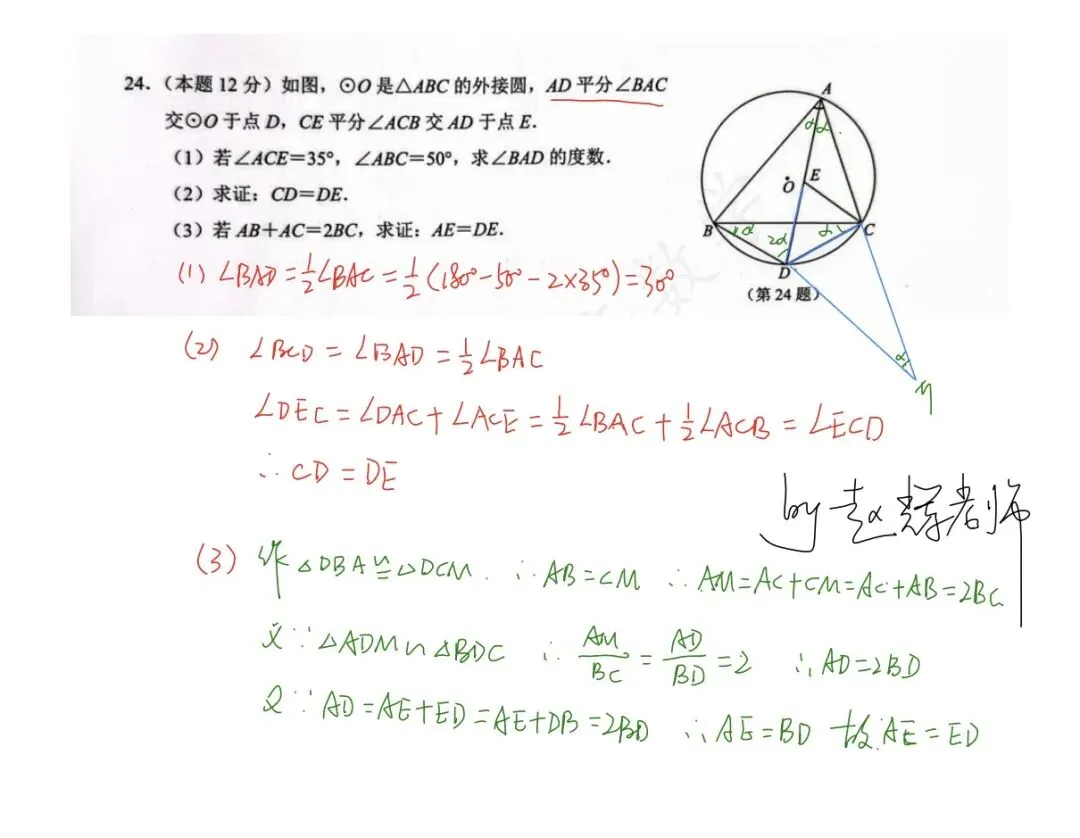 24.（本题12分）如图，⊙O是△ABC的外接圆，AD平分∠BAC
交⊙O于点D，CE平分∠ACB交AD于点E.
（1）若∠ACE=35°，∠ABC=50°，求∠BAD的度数.
（2）求证：CD=DE.
（3）若AB+AC=2BC，求证：AE=DE.
A
α α
E
O
B
α
2α
α
C
D
（第24题）
α
M
(1) ∠BAD=½∠BAC=½(180°-50°-2×35°)=30°
(2) ∠BCD=∠BAD=½∠BAC
∠DEC=∠DAC+∠ACE=½∠BAC+½∠ACB=∠ECD
∴CD=DE
by 赵老师
(3) 作△DBA≌△DCM ∴AB=CM ∴AM=AC+CM=AC+AB=2BC
又∵△ADM∽△BDC ∴AM/BC=AD/BD=2 ∴AD=2BD
又∵AD=AE+ED=AE+DB=2BD ∴AE=BD 故AE=ED